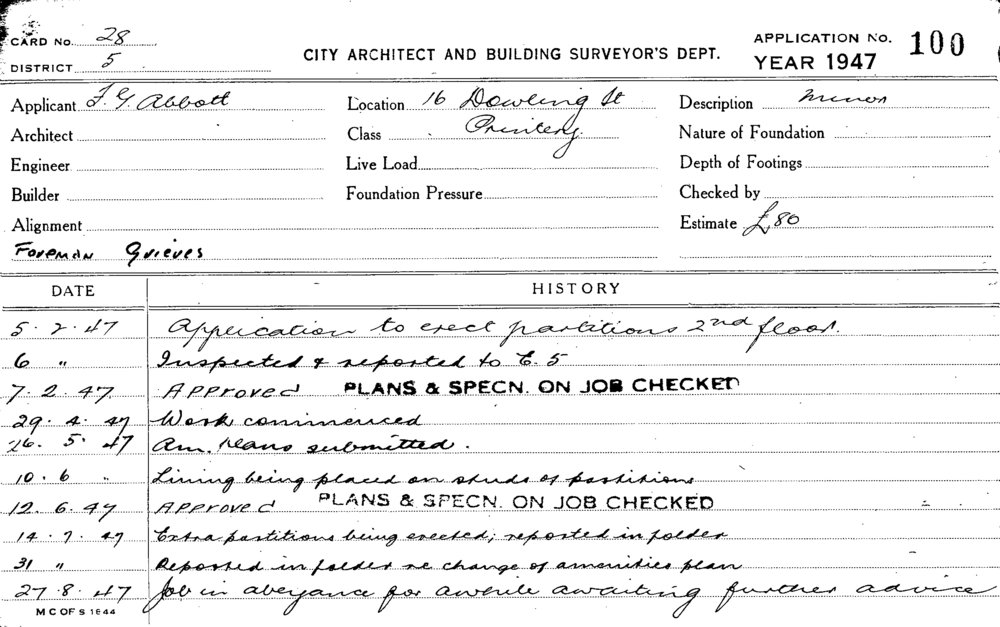 CARD No. 28
DISTRICT 5
CITY ARCHITECT AND BUILDING SURVEYOR'S DEPT.
APPLICATION No. 100
YEAR 1947
Applicant F. G. Abbott Location 16 Dowling St Description Minor
Architect Class Printery. Nature of Foundation
Engineer Live Load Depth of Footings
Builder Foundation Pressure Checked by
Alignment Estimate £80
Foreman Grieves
DATE HISTORY
5. 2. 47 Application to erect partitions 2nd floor.
6 " Inspected & reported to E. 5
7. 2. 47. Approved PLANS & SPECN. ON JOB CHECKED
29. 4. 47 Work commenced
26. 5. 47 Am. Plans submitted.
10. 6 " Lining being placed on studs of partitions
12. 6. 47 Approved PLANS & SPECN. ON JOB CHECKED
14. 7. 47 Extra partitions being erected; reported in folder
31 " Reported in folder re change of amenities plan
27. 8. 47 Job in abeyance for awhile awaiting further advice
M C OF S 1844